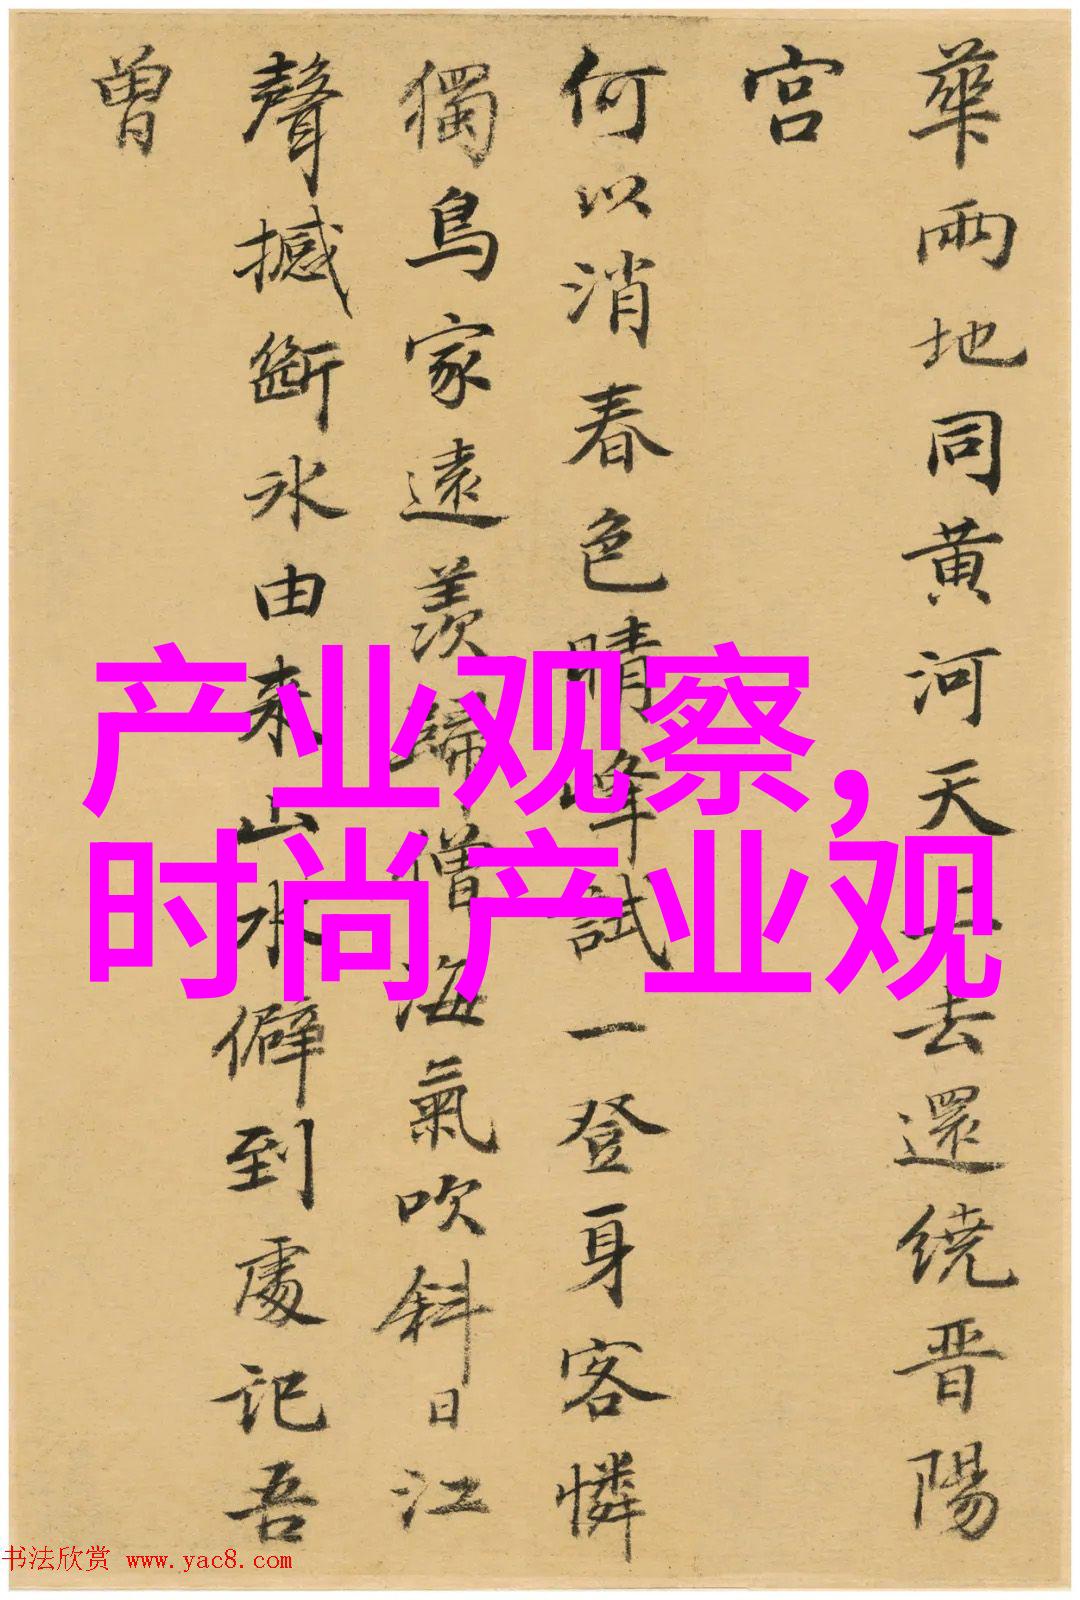 華兩地同黄河天上去還繞晋陽
宫
何以消春色晴峰試一登身客憐
獨鳥家遠羨歸僧海氣吹斜日江
聲撼斷冰由来山水僻到處記吾
曾
产业观察，
时尚产业观
书法欣赏 www.yac8.com